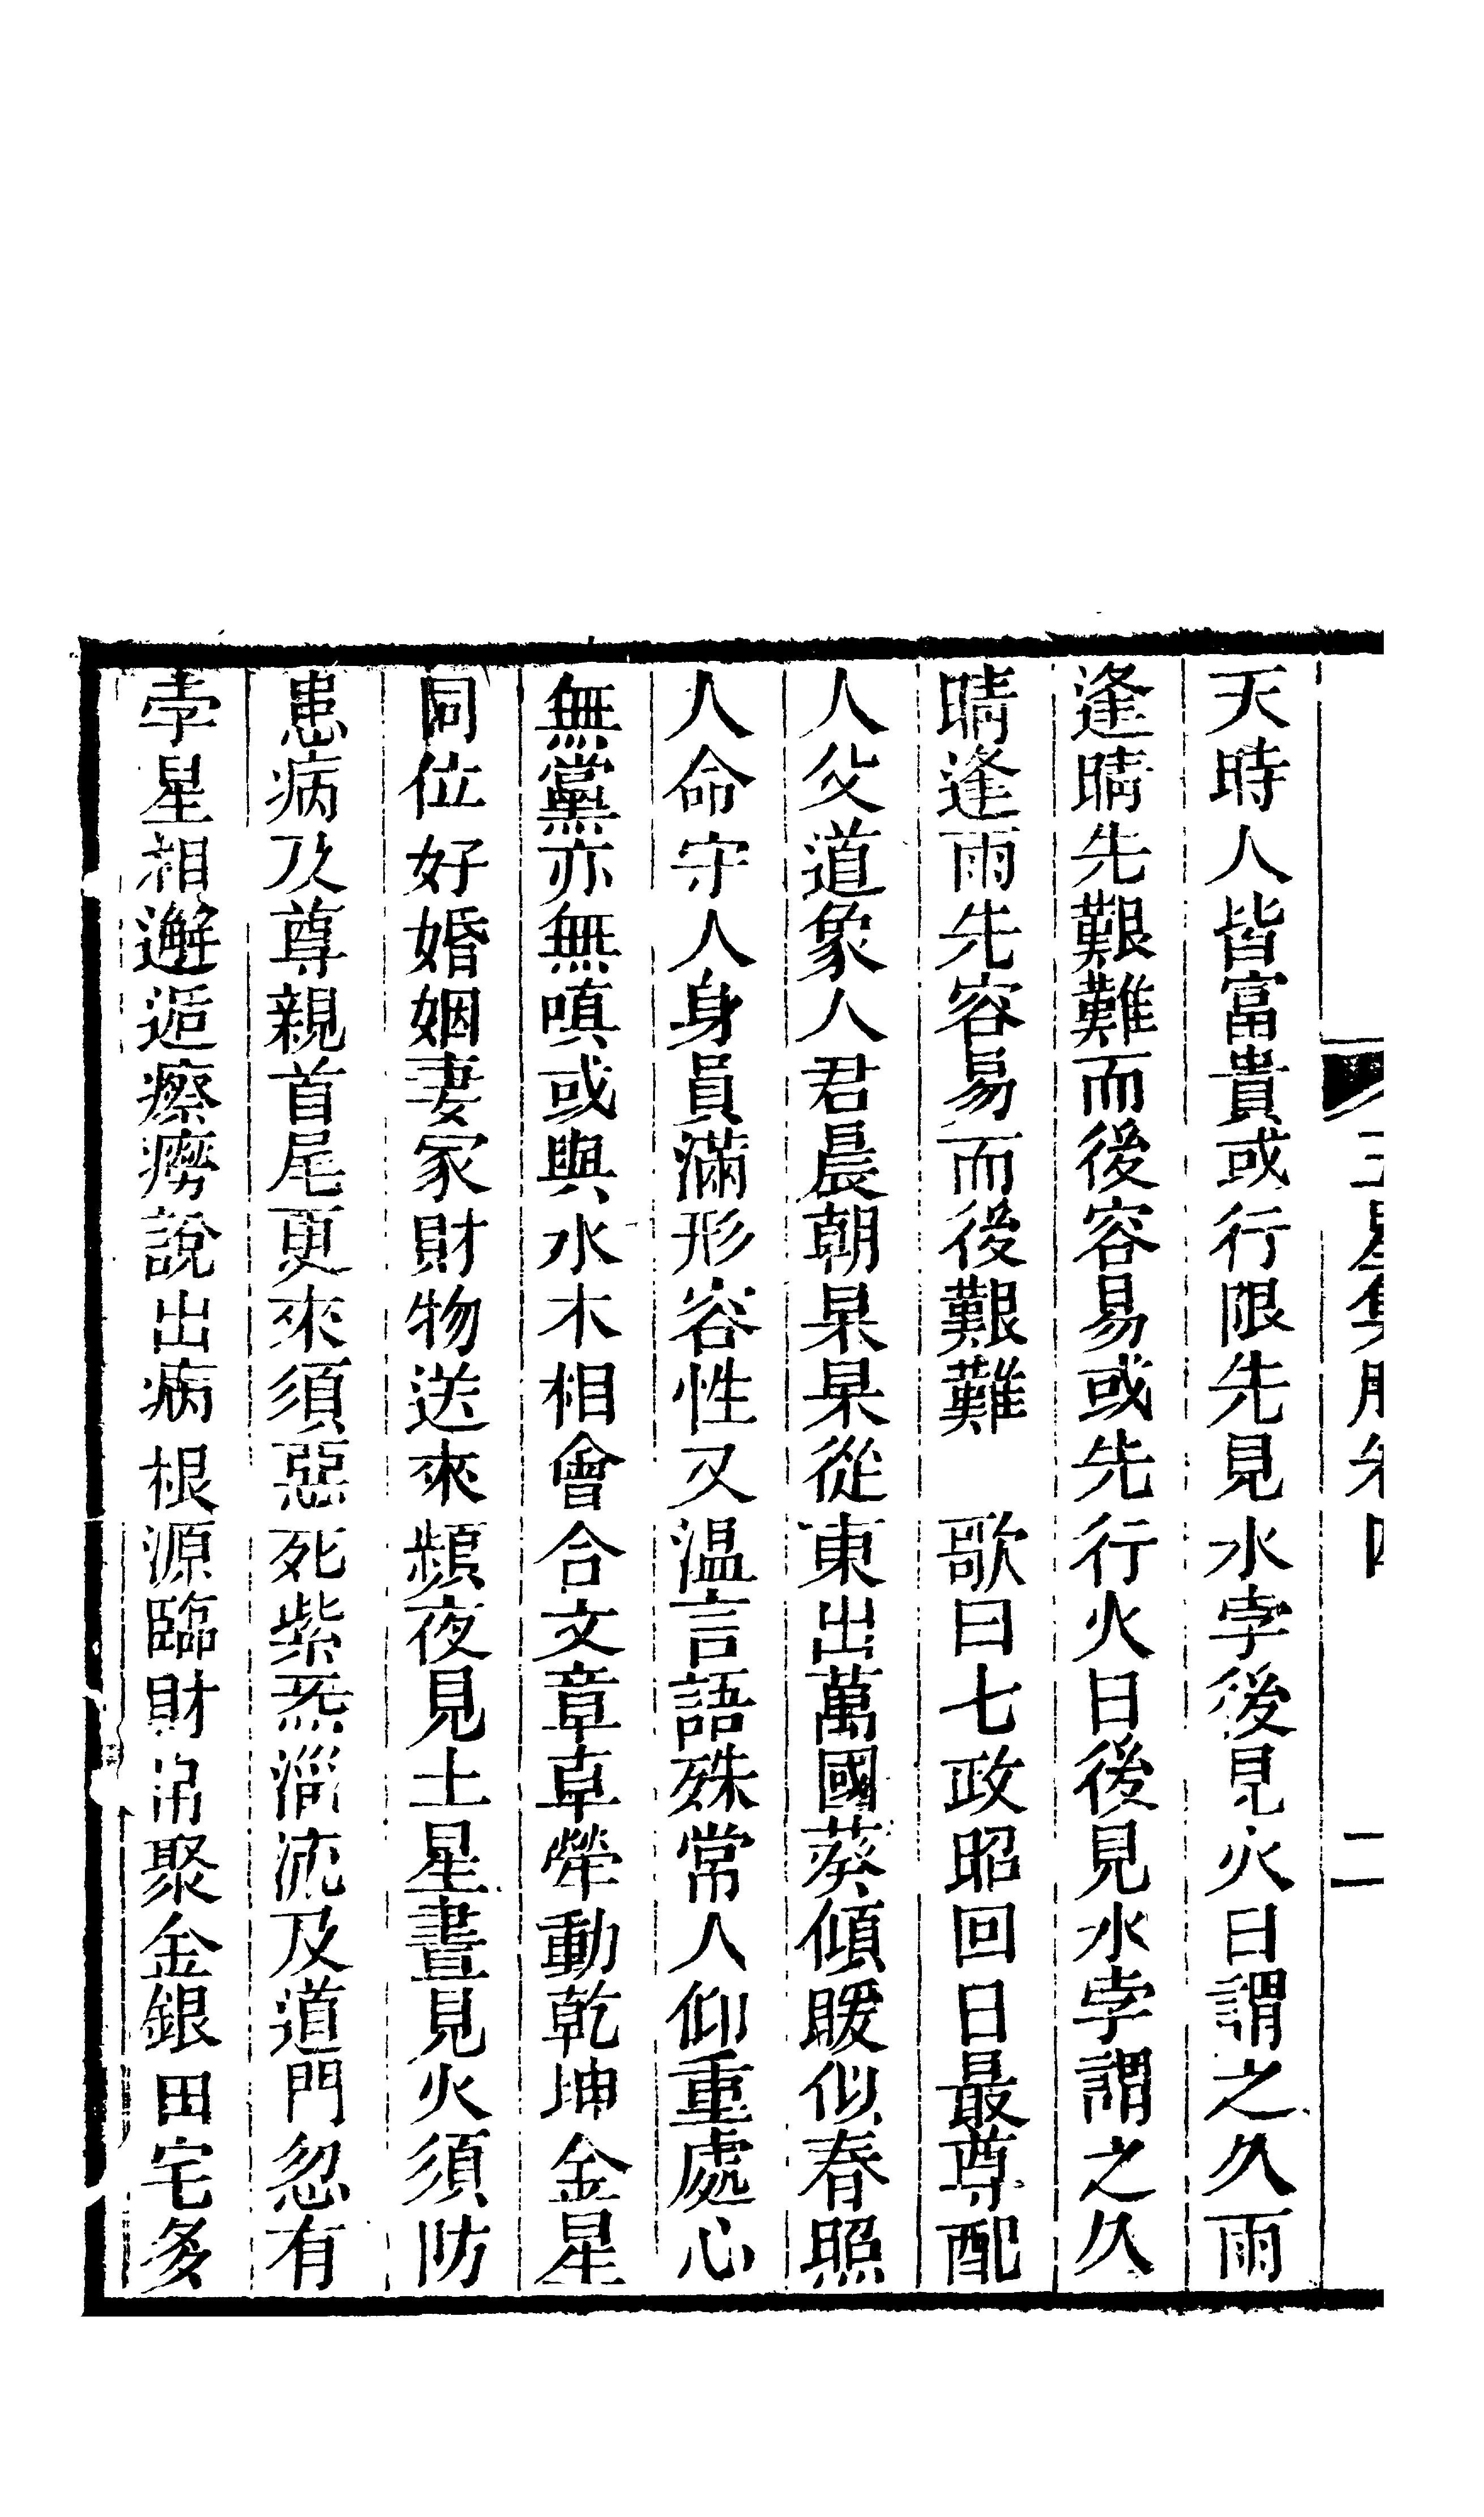 天時人皆富貴或行限先見水孛後見火日謂之久雨
逢晴先艱難而後容易或先行火日後見水孛謂之久
晴逢雨先容易而後艱難　歌曰七政昭回日最尊配
人父道象人君晨朝杲杲從東出萬國葵傾暖似春照
人命守人身員滿形容性又温言語殊常人仰重處心
無黨亦無嗔或與水木相會合文章卓犖動乾坤金星
同位好婚姻妻家財物送來頻夜見土星晝見火須防
患病及尊親首尾更來須惡死紫炁淄流及道門忽有
孛星相邂逅瘵癆說出病根源臨財帛聚金銀田宅多
星集腋卷四
二